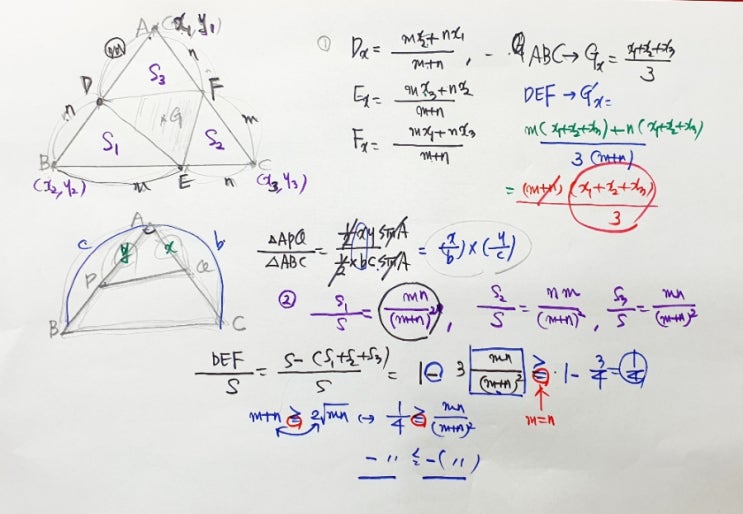 A (x₁, y₁)
m n
D S₃ F
n G m
S₁ S₂
B m E n C
(x₂, y₂) (x₃, y₃)
① Dx = (mx₂+nx₁)/(m+n), ABC → Gx = (x₁+x₂+x₃)/3
Ex = (mx₃+nx₂)/(m+n) DEF → G'x =
Fx = (mx₁+nx₃)/(m+n) (m(x₁+x₂+x₃)+n(x₁+x₂+x₃))/(3(m+n))
= (m+n)(x₁+x₂+x₃)/3
A
c y x b
P Q
B C
△APQ/△ABC = (½xy sinA)/(½×bc sinA) = (x/b)×(y/c)
② S₁/S = mn/(m+n)², S₂/S = nm/(m+n)², S₃/S = mn/(m+n)²
DEF/S = (S-(S₁+S₂+S₃))/S = 1-3 mn/(m+n)² ≥ 1-3/4=1/4
m+n ≥ 2√mn → 1/4 ≥ mn/(m+n)² m=n
- 〃 ≤ -(〃)